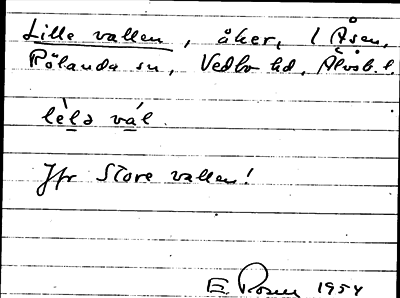 Lille vallen, åker, 1 Åsen,
Rölanda sn, Vedbo hd, Älvsb. l.
lèlə vál.
Jfr Store vallen!
E. Rosén 1954